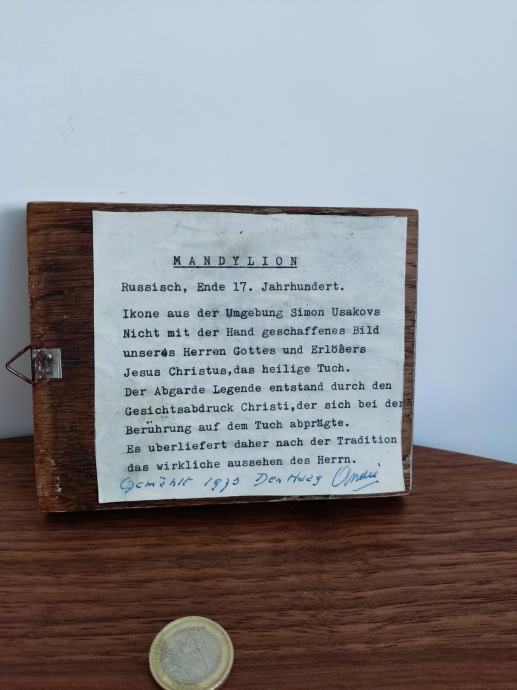 MANDYLION
Russisch, Ende 17. Jahrhundert.
Ikone aus der Umgebung Simon Usakovs
Nicht mit der Hand geschaffenes Bild
unseres Herren Gottes und Erlösers
Jesus Christus,das heilige Tuch.
Der Abgarde Legende entstand durch den
Gesichtsabdruck Christi,der sich bei der
Berührung auf dem Tuch abprägte.
Es uberliefert daher nach der Tradition
das wirkliche aussehen des Herrn.
Gemählt Den Haag André